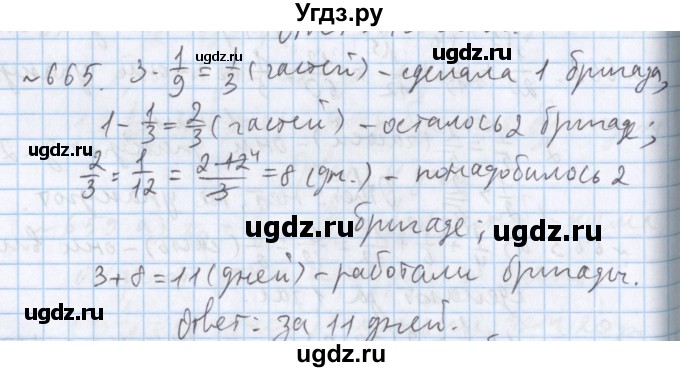 Угдз.ру
~665. 3 · 1/9 = 1/3 (частей) – сделала 1 бригада,
1 - 1/3 = 2/3 (частей) – осталось 2 бригаде;
2/3 : 1/12 = 2·12⁴/3 = 8 (дн.) – понадобилось 2
бригаде;
3 + 8 = 11 (дней) – работали бригады.
Ответ: за 11 дней.
ugdz.ru
ugdz.ru
ugdz.ru
ugdz.ru
ugdz.ru
ugdz.ru
ugdz.ru
ugdz.ru
ugdz.ru